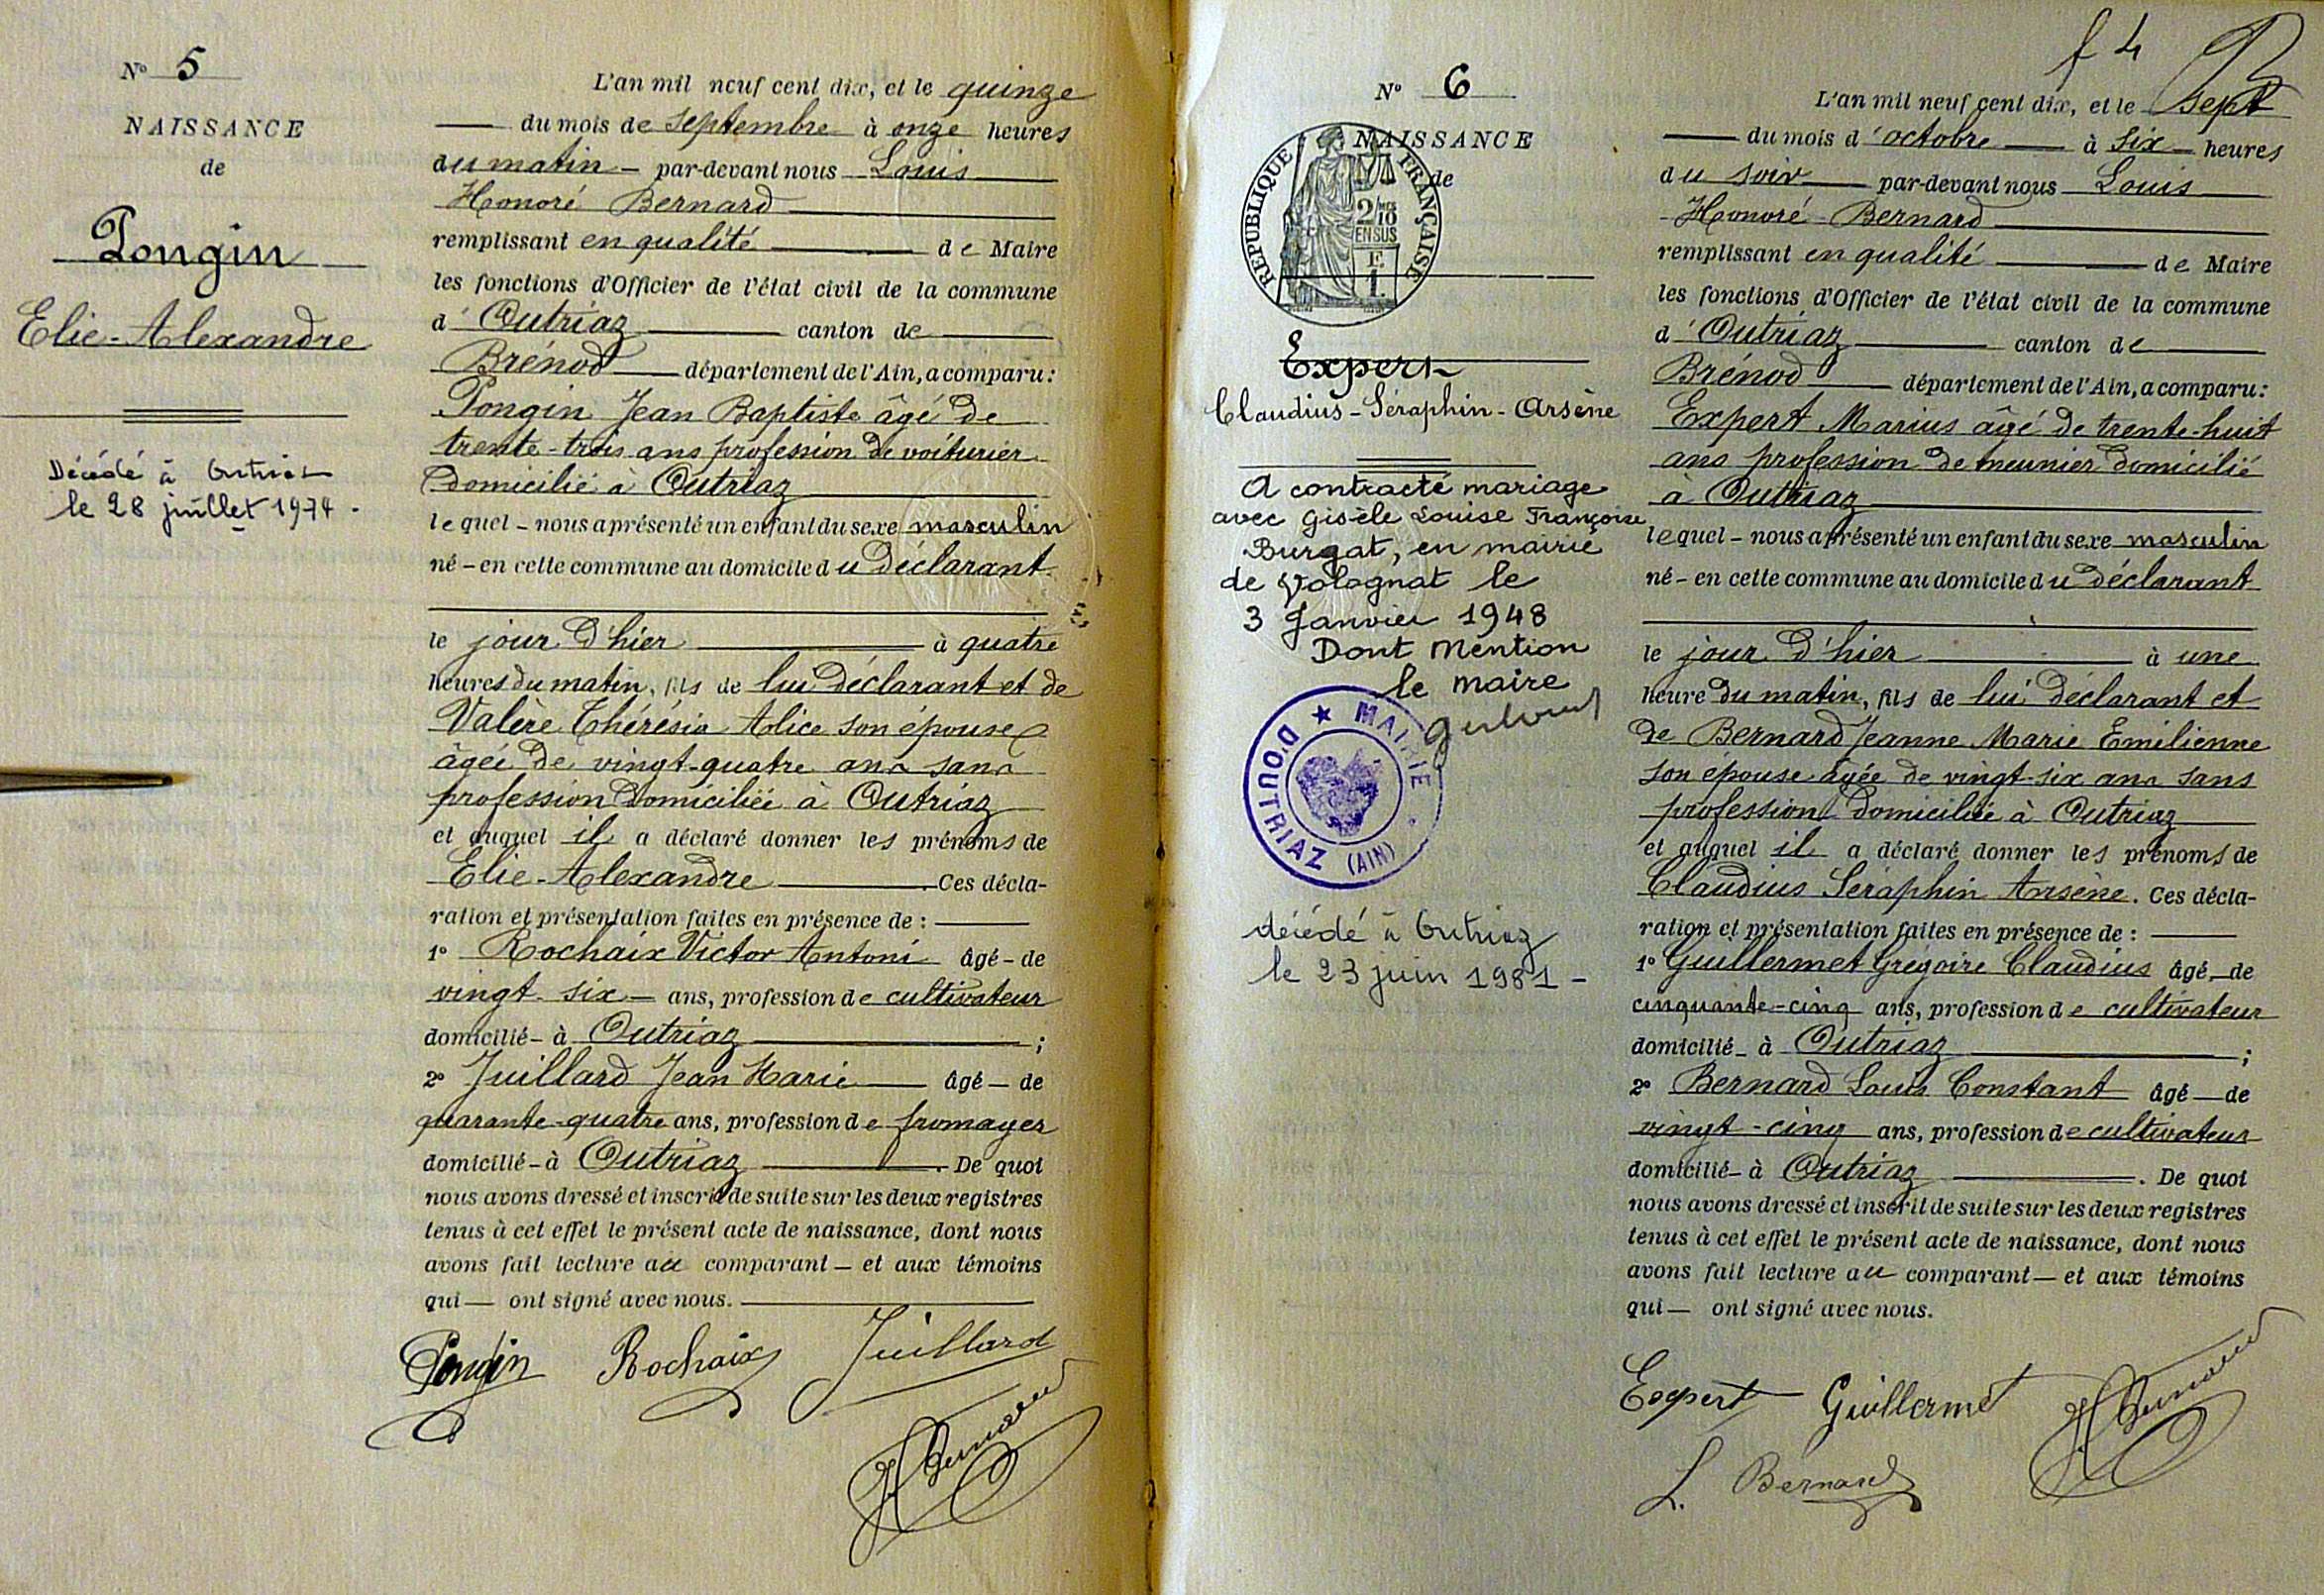 N° 5
NAISSANCE
de
Pongin
Elie-Alexandre
Décédé à Outriaz
le 28 juillet 1974.
L'an mil neuf cent dix, et le quinze
du mois de septembre à onze heures
du matin - par-devant nous Louis
Honoré Bernard
remplissant en qualité de Maire
les fonctions d'Officier de l'état civil de la commune
d' Outriaz canton de
Brénod département de l'Ain, a comparu:
Pongin Jean Baptiste âgé de
trente-trois ans profession de voiturier
domicilié à Outriaz
lequel - nous a présenté un enfant du sexe masculin
né - en cette commune au domicile du déclarant
le jour d'hier à quatre
heures du matin, fils de lui déclarant et de
Valère Thérésia Alice son épouse
âgée de vingt-quatre ans sans
profession domiciliée à Outriaz
et auquel il a déclaré donner les prénoms de
Elie-Alexandre Ces décla-
ration et présentation faites en présence de :
1° Rochaix Victor Antoni âgé - de
vingt-six - ans, profession de cultivateur
domicilié - à Outriaz ;
2° Juillard Jean Marie âgé - de
quarante-quatre ans, profession de fromager
domicilié - à Outriaz . De quoi
nous avons dressé et inscrit de suite sur les deux registres
tenus à cet effet le présent acte de naissance, dont nous
avons fait lecture au comparant - et aux témoins
qui - ont signé avec nous.
Pongin Rochaix Juillard
H Bernard
f 4
N° 6
NAISSANCE
de
REPUBLIQUE FRANÇAISE
2/10 MES
EN SUS
E
1.
Expert
Claudius-Séraphin-Arsène
A contracté mariage
avec Gisèle Louise Françoise
Burgat, en mairie
de Volognat le
3 Janvier 1948
Dont Mention
le maire
MAIRIE D'OUTRIAZ (AIN)
décédé à Outriaz
le 23 juin 1981 -
L'an mil neuf cent dix, et le sept
du mois d'octobre à six - heures
du soir par-devant nous Louis
Honoré Bernard
remplissant en qualité de Maire
les fonctions d'Officier de l'état civil de la commune
d' Outriaz canton de
Brénod département de l'Ain, a comparu:
Expert Marius âgé de trente-huit
ans profession de meunier domicilié
à Outriaz
lequel - nous a présenté un enfant du sexe masculin
né - en cette commune au domicile du déclarant
le jour d'hier à une
heure du matin, fils de lui déclarant et
de Bernard Jeanne Marie Emilienne
son épouse âgée de vingt-six ans sans
profession domiciliée à Outriaz
et auquel il a déclaré donner les prénoms de
Claudius Séraphin Arsène. Ces décla-
ration et présentation faites en présence de :
1° Guillermet Grégoire Claudius âgé - de
cinquante-cinq ans, profession de cultivateur
domicilié - à Outriaz ;
2° Bernard Louis Constant âgé - de
vingt-cinq ans, profession de cultivateur
domicilié - à Outriaz . De quoi
nous avons dressé et inscrit de suite sur les deux registres
tenus à cet effet le présent acte de naissance, dont nous
avons fait lecture au comparant - et aux témoins
qui - ont signé avec nous.
Expert Guillermet H Bernard
L. Bernard